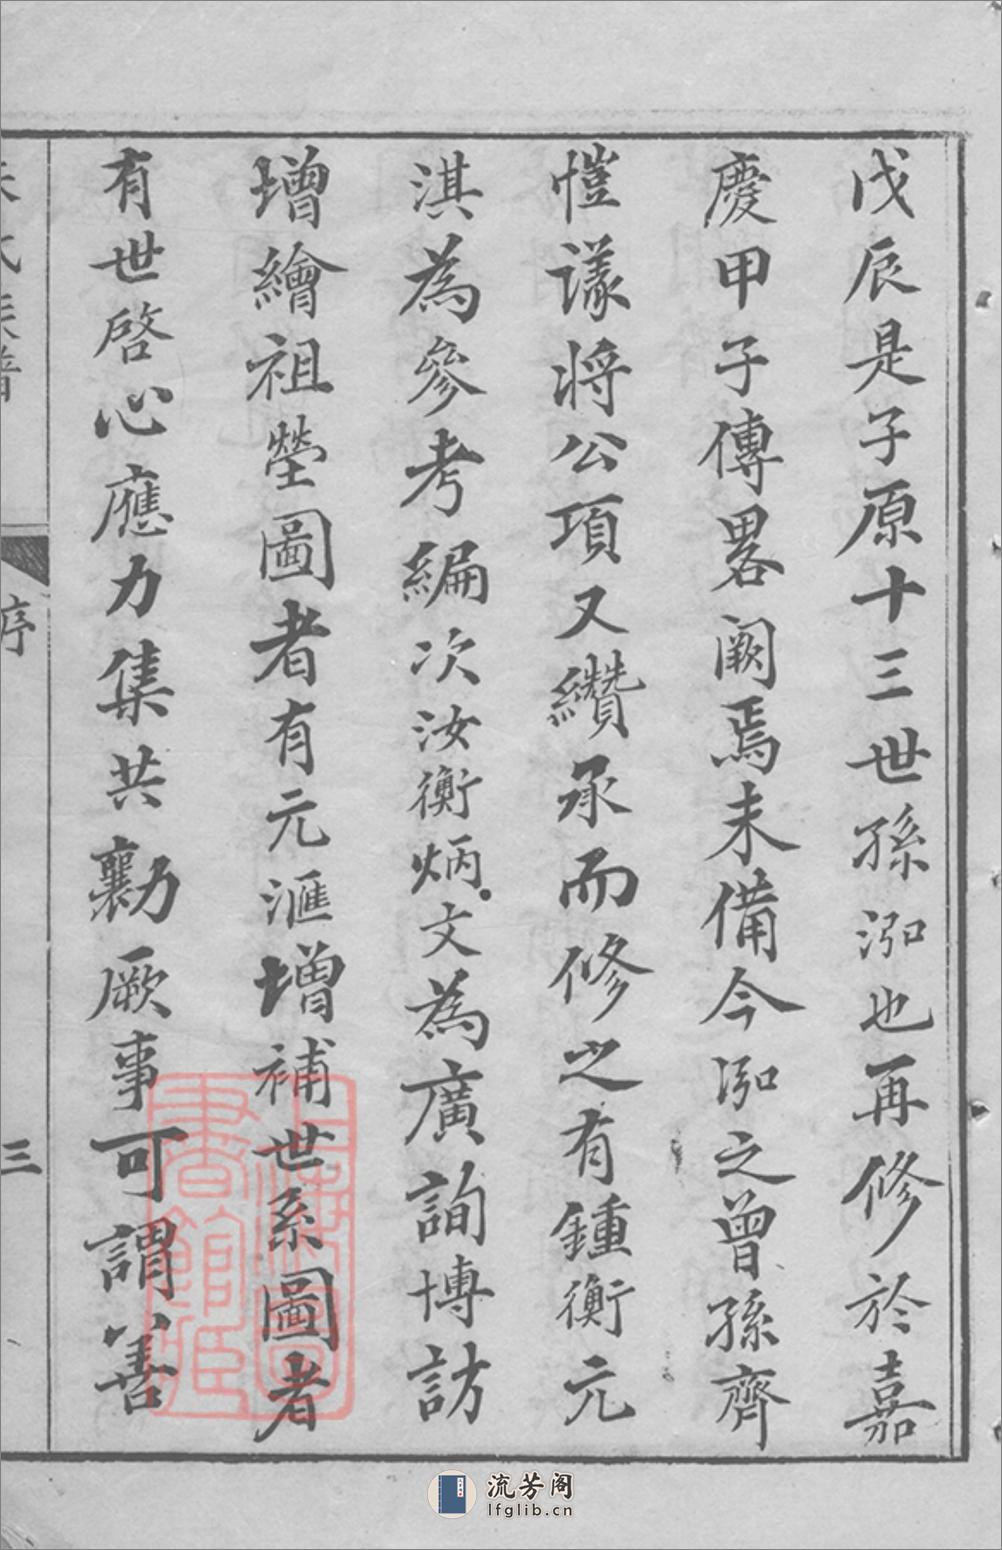 戊辰是子原十三世孫泓也再修於嘉
慶甲子傳畧阙焉未備今泓之曾孫齊
愷議將公項又纘承而修之有鍾衡元
淇為參考編次汝衡炳文為廣詢博訪
增繪祖塋圖者有元滙增補世系圖者
有世啓心應力集共勷厥事可謂善
氏族譜
序
三
流芳阁
lfglib.cn